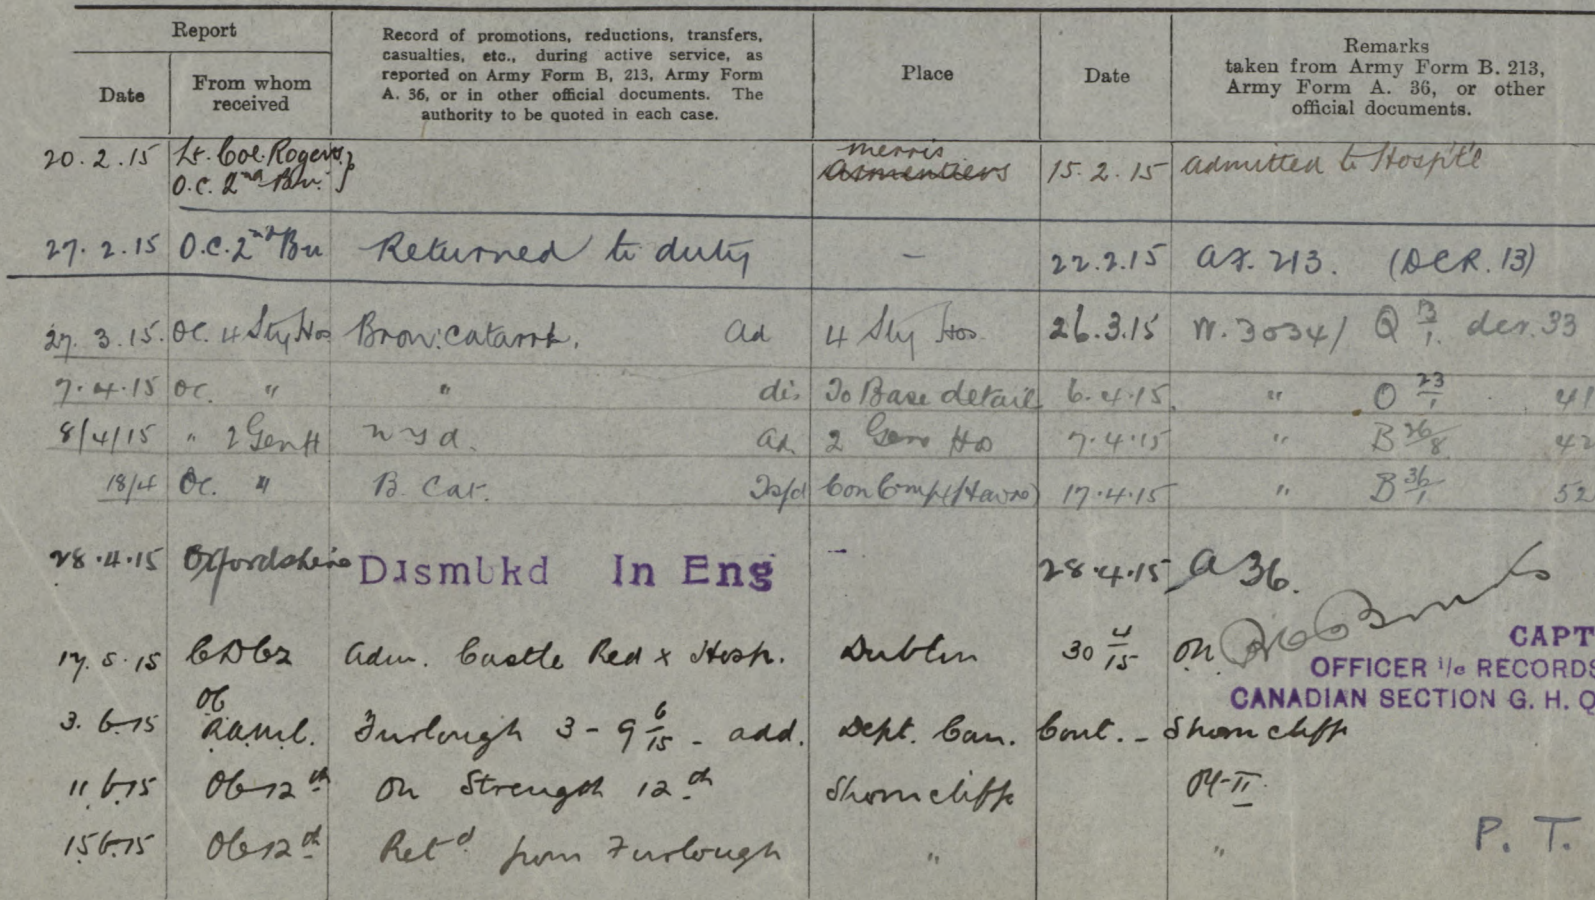 Report
Date
From whom
received
Record of promotions, reductions, transfers,
casualties, etc., during active service, as
reported on Army Form B, 213, Army Form
A. 36, or in other official documents. The
authority to be quoted in each case.
Place
Date
Remarks
taken from Army Form B. 213,
Army Form A. 36, or other
official documents.
20.2.15 Lt. Col. Rogers } merris 15.2.15 admitted to Hosp'tl
O.C. 2nd Bn. Armentiers
27.2.15 O.C. 2nd Bn Returned to duty — 22.2.15 AF. 213. (DCR. 13)
27.3.15. OC. 4 Sty Hos Bron: Catarrh. Ad 4 Sty Hos. 26.3.15 W. 3034/ Q 13/1. der. 33
7.4.15 OC. " " dis To Base detail 6.4.15. " O 23/1 41
8/4/15 " 2 Gen H N Y d. Ad. 2 Gen Ho 7.4.15 " B 26/8 42
18/4 OC. " B. Cat. Tsfd Con Camp (Havre) 17.4.15 " B 36/1 52
28.4.15 Oxfordshire Dismbkd In Eng — 28.4.15 A 36.
17.5.15 Adm. Castle Red x Hosp. Dublin 30 4/15 On
CAPT
OFFICER I/C RECORDS
CANADIAN SECTION G. H. Q
3.6.15 OC RAMC. Furlough 3 - 9 6/15 - add. Dept. Can. Cont. - Shorncliff
11.6.15 OC 12th On Strength 12th Shorncliff
15.6.15 OC 12th Ret'd from Furlough " "
P. T.